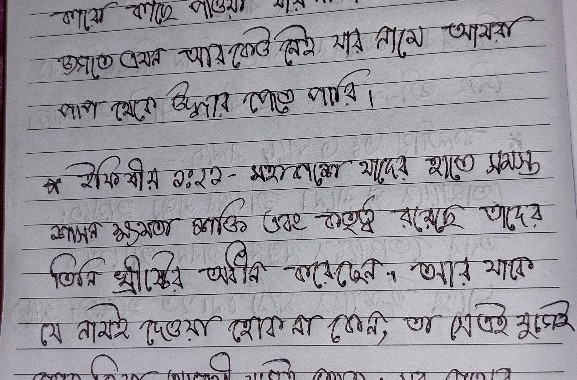 কারো কাছে পাওয়া যায়
জগতে এমন আর কেউ নেই যার নামে আমরা
পাপ থেকে উদ্ধার পেতে পারি।
* ইফিষীয় ১:২১- মহাকাশে যাদের হাতে সমস্ত
শাসন ক্ষমতা শক্তি এবং কর্তৃত্ব রয়েছে তাদের
তিনি খ্রীষ্টের অধীন করেছেন, আর যাকে
যে নামই দেওয়া হোক না কেন, তা সে এই যুগেই